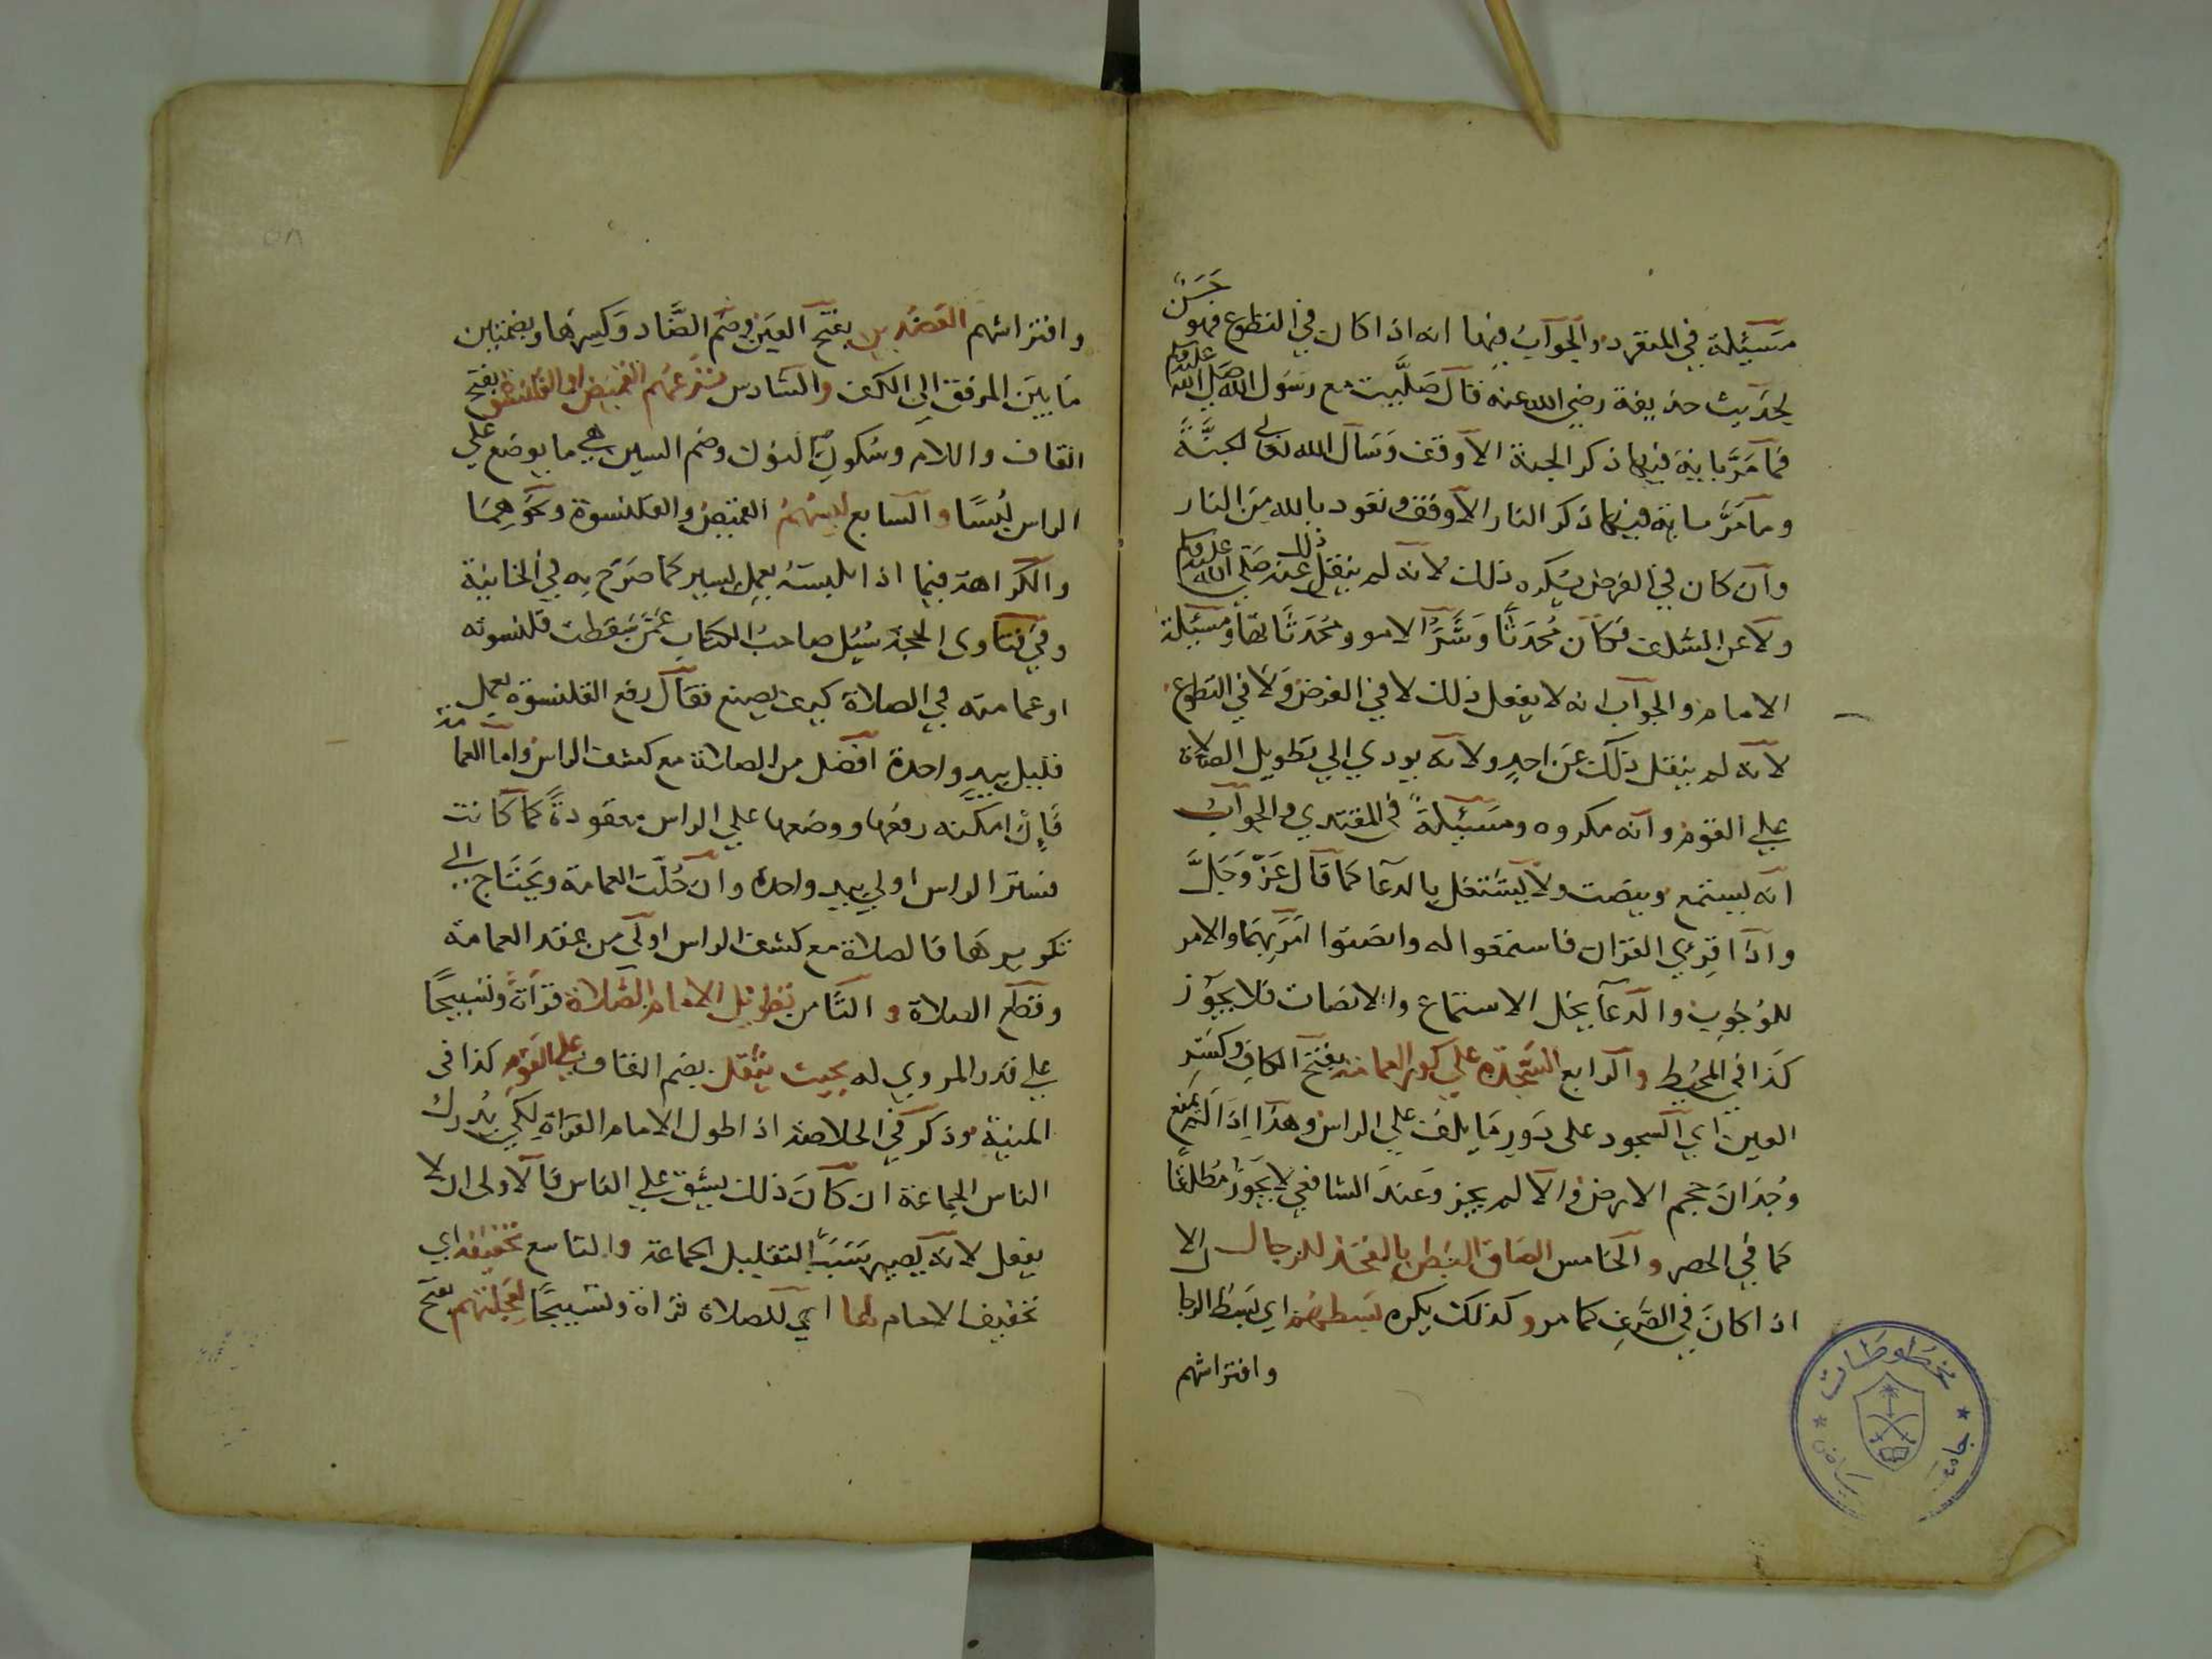 مسئلة في المنفرد والجواب فيها انه اذا كان في التطوع فهو حسن
لحديث حذيفة رضي الله عنه قال صليت مع رسول الله صلى الله عليه وسلم
فما مر باية فيها ذكر الجنة الا وقف وسأل الله تعالى الجنة
وما مر باية فيها ذكر النار الا وقف وتعوذ بالله من النار
وان كان في الفرض يكره ذلك لانه لم ينقل ذلك عنه صلى الله عليه وسلم
ولا عن السلف فكان محدثا وشر الامور محدثاتها ومسئلة
الامام والجواب انه لا يفعل ذلك لا في الفرض ولا في التطوع
لانه لم ينقل ذلك عن احد ولانه يودي الى تطويل الصلاة
على القوم وانه مكروه ومسئلة في المقتدي والجواب
انه يستمع وينصت ولا يشتغل بالدعا كما قال عز وجل
واذا قرئ القران فاستمعوا له وانصتوا امر بهما والامر
للوجوب والدعا يخل الاستماع والانصات فلا يجوز
كذا في المحيط والرابع السجدة على كور العمامة بفتح الكاف وكسر
العين اي السجود على دور ما يلف على الراس وهذا اذا لم يمنع
وجدان حجم الارض والا لم يجز وعند الشافعي لا يجوز مطلقا
كما في الحصر والخامس الصاق البطن بالفخذ للرجال الا
اذا كان في الصف كما مر وكذلك يكره بسط اي بسط الرجا
وافتراشهم
وافتراشهم العضدين بفتح العين وضم الضاد وكسرها وبضمتين
ما بين المرفق الى الكتف والسادس نزعهم القميص او القلنسوة بفتح
القاف واللام وسكون النون وضم السين هي ما يوضع على
الراس لبسا والسابع لبسهم القميص والقلنسوة ونحوهما
والكراهة فيما اذا لبسه بعمل يسير كما صرح به في الخانية
وفي فتاوى الحجة سئل صاحب الكتاب عمن سقطت قلنسوته
او عمامته في الصلاة كيف يصنع فقال رفع القلنسوة بعمل
قليل بيد واحدة افضل من الصلاة مع كشف الراس واما العمامة
فان امكنه رفعها ووضعها على الراس معقودة كما كانت
فستر الراس اولى بيد واحدة وان حلت العمامة ويحتاج الى
تكويرها فالصلاة مع كشف الراس اولى من عقد العمامة
وقطع الصلاة والثامن تطويل الامام الصلاة قراة وتسبيحا
على قدر المروي له بحيث يثقل بضم القاف على القوم كذا في
المنية وذكر في الخلاصة اذا طول الامام القراة لكي يدرك
الناس الجماعة ان كان ذلك يشق على الناس فالاولى ان لا
يفعل لانه يصير سببا لتقليل الجماعة والتاسع تخفيفه اي
تخفيف الامام لها اي للصلاة قراة وتسبيحا لعجلتهم بفتح
مخطوطات
جامعة